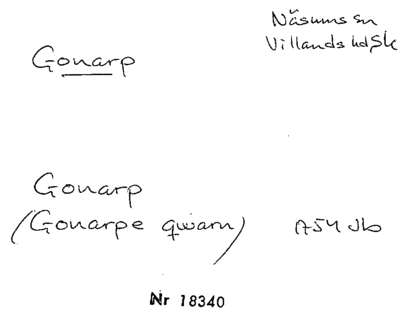 Näsums sn
Villands hd Sk
Gonarp
Gonarp
(Gonarpe qwarn) 1754 Jb
Nr 18340